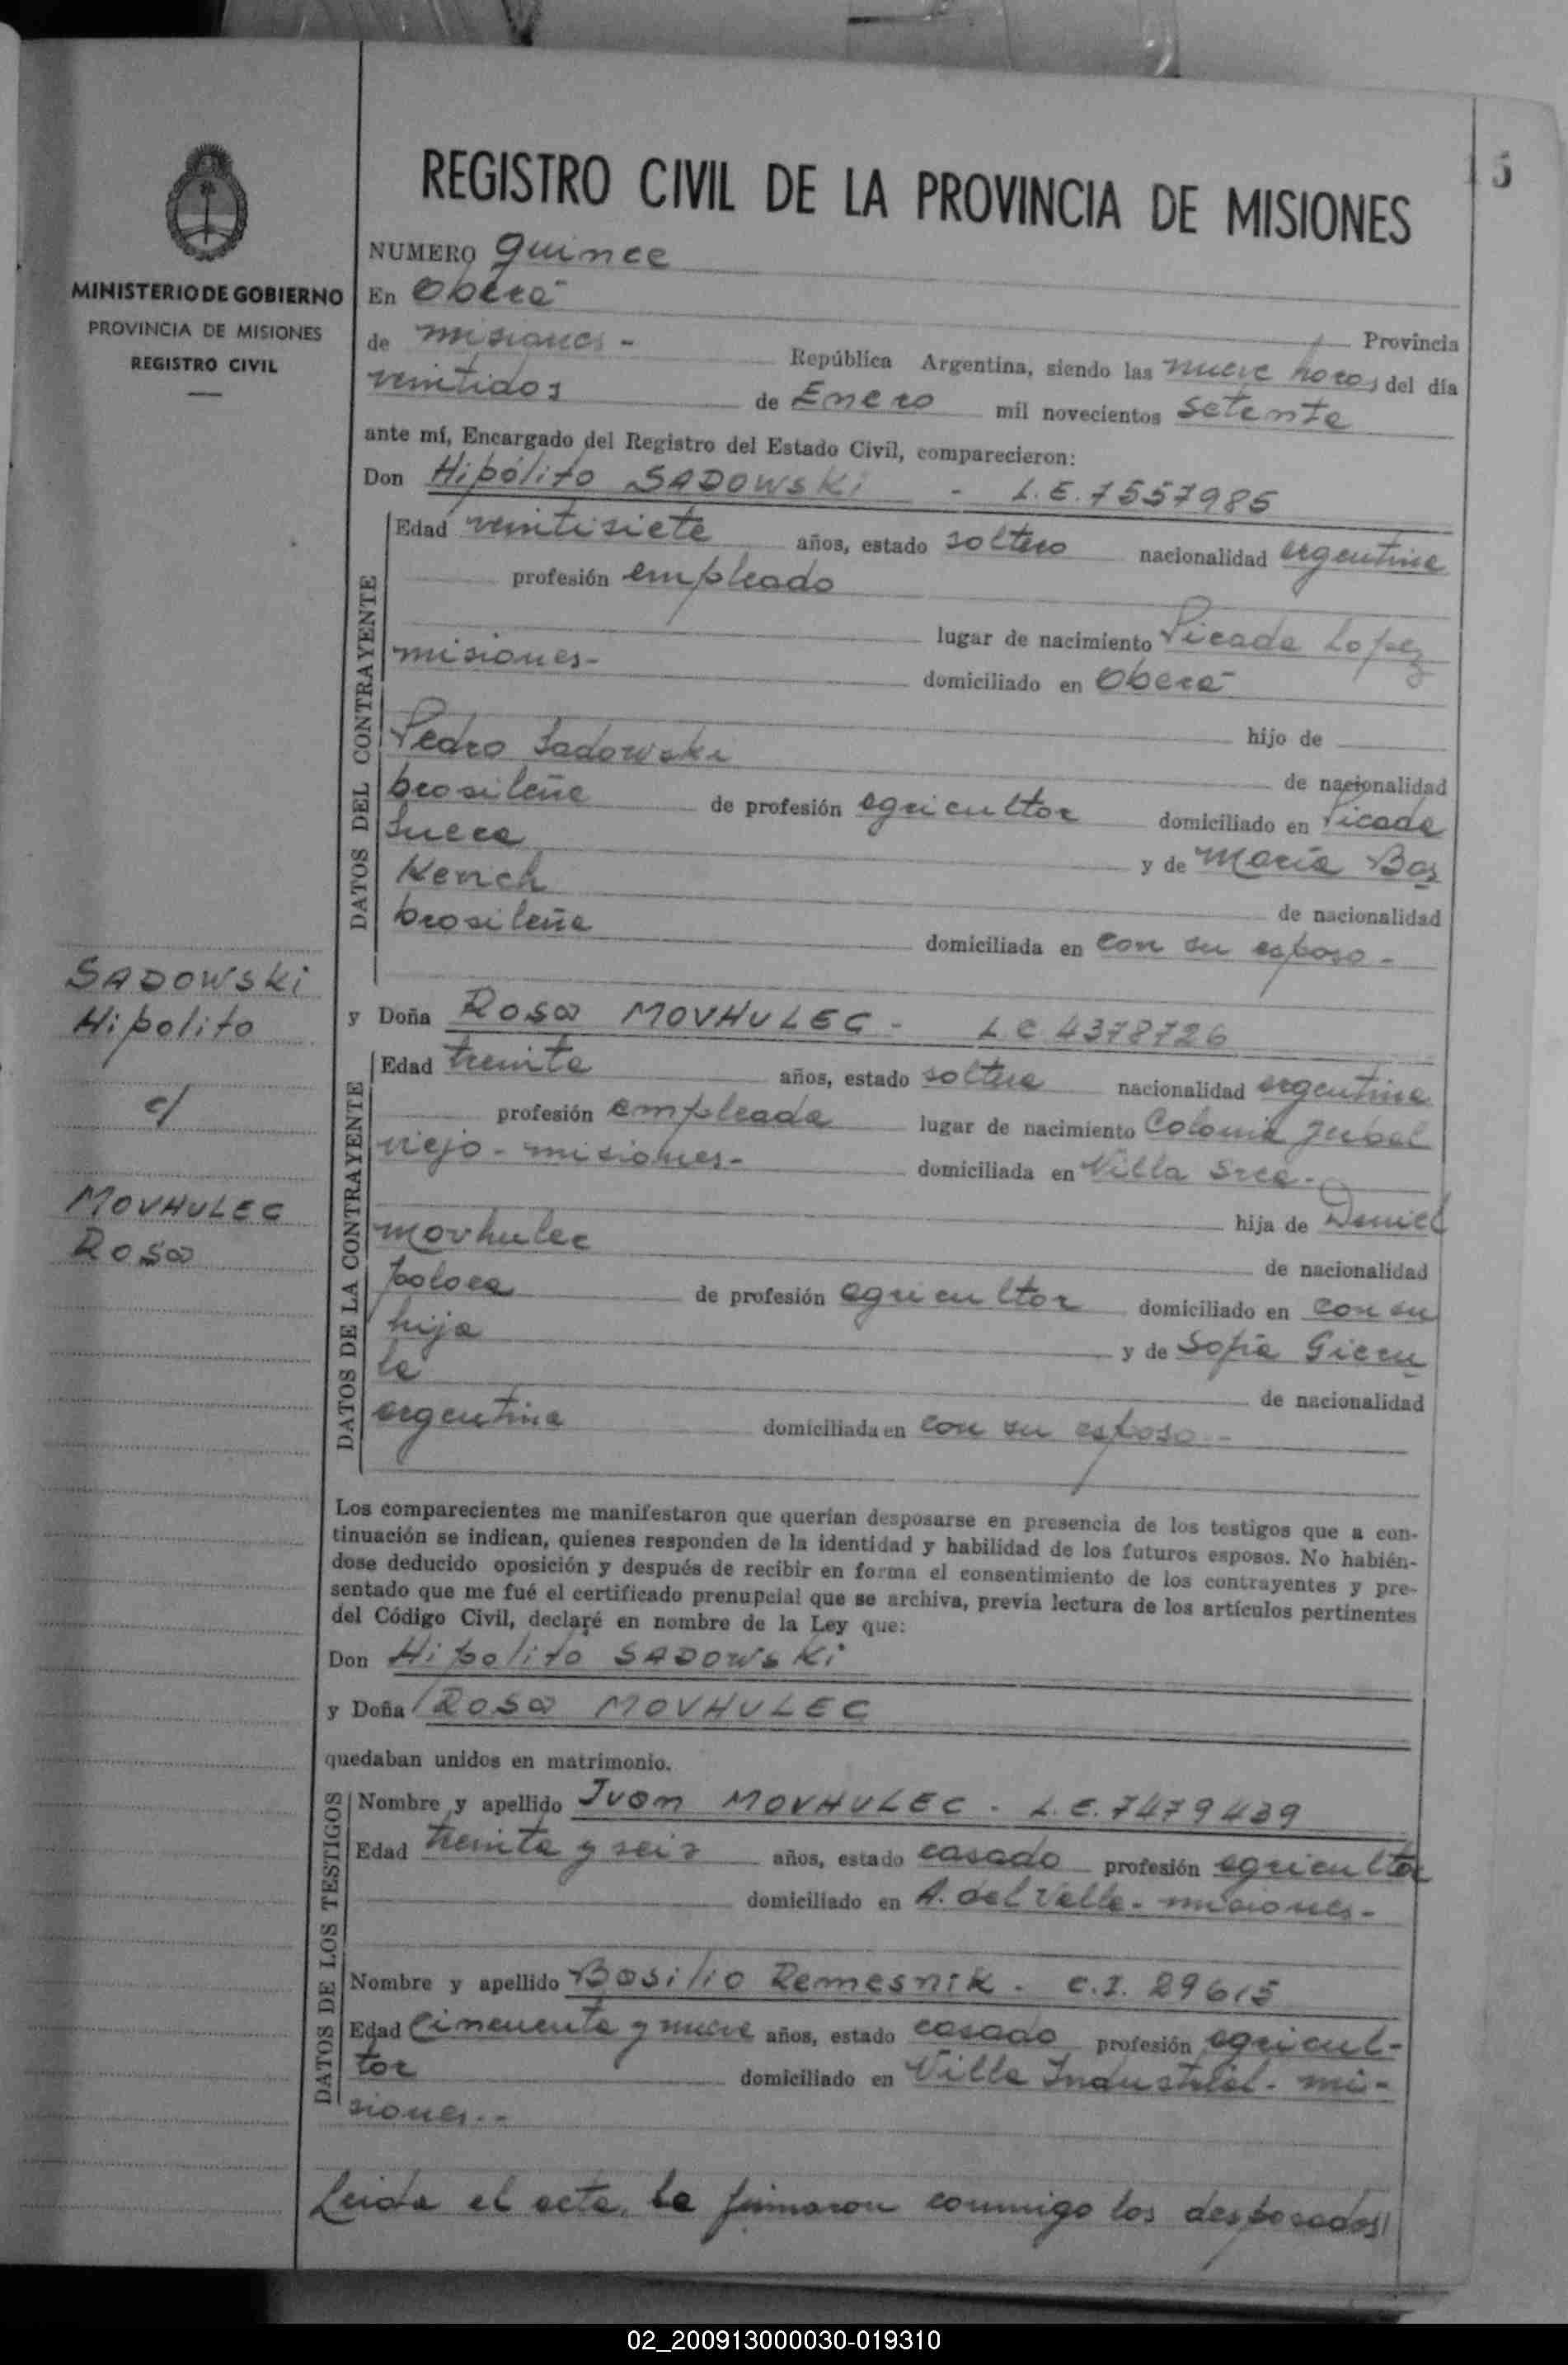 15
REGISTRO CIVIL DE LA PROVINCIA DE MISIONES
MINISTERIO DE GOBIERNO
PROVINCIA DE MISIONES
REGISTRO CIVIL
NUMERO quince
En Oberá Provincia
de misiones - República Argentina, siendo las nueve horas del día
veintidos de Enero mil novecientos setenta
ante mí, Encargado del Registro del Estado Civil, comparecieron:
Don Hipólito SADOWSKi - L.E. 7557985
DATOS DEL CONTRAYENTE
Edad veintisiete años, estado soltero nacionalidad argentina
profesión empleado
lugar de nacimiento Picada Lopez
misiones- domiciliado en Oberá
hijo de
Pedro Sadowski de nacionalidad
brasileña de profesión agricultor domiciliado en Picada
Sueca y de María Bas
Kerich de nacionalidad
brasileña domiciliada en con su esposo -
SADOWSKi
Hipolito
c/
MOVHULEC
Rosa
y Doña Rosa MOVHULEC - L.C 4378726
DATOS DE LA CONTRAYENTE
Edad treinta años, estado soltera nacionalidad argentina
profesión empleada lugar de nacimiento Colonia Yerbal
viejo - misiones - domiciliada en Villa Srea.-
hija de Daniel
Movhulec de nacionalidad
polaca de profesión agricultor domiciliado en con su
hija y de Sofía Giecu
la de nacionalidad
argentina domiciliada en con su esposo -
Los comparecientes me manifestaron que querían desposarse en presencia de los testigos que a con-
tinuación se indican, quienes responden de la identidad y habilidad de los futuros esposos. No habién-
dose deducido oposición y después de recibir en forma el consentimiento de los contrayentes y pre-
sentado que me fué el certificado prenupcial que se archiva, previa lectura de los artículos pertinentes
del Código Civil, declaré en nombre de la Ley que:
Don Hipolito SADOWSKi
y Doña Rosa MOVHULEC
quedaban unidos en matrimonio.
DATOS DE LOS TESTIGOS
Nombre y apellido Juan MOVHULEC - L.E. 7479439
Edad treinta y seis años, estado casado profesión agricultor
domiciliado en A. del Valle - misiones -
Nombre y apellido Basilio Remesnik - C.I. 29615
Edad Cincuenta y nueve años, estado casado profesión agricul-
tor domiciliado en Villa Industrial - mi-
siones.-
Leida el acta, la firmaron conmigo los desposados
02_200913000030-019310